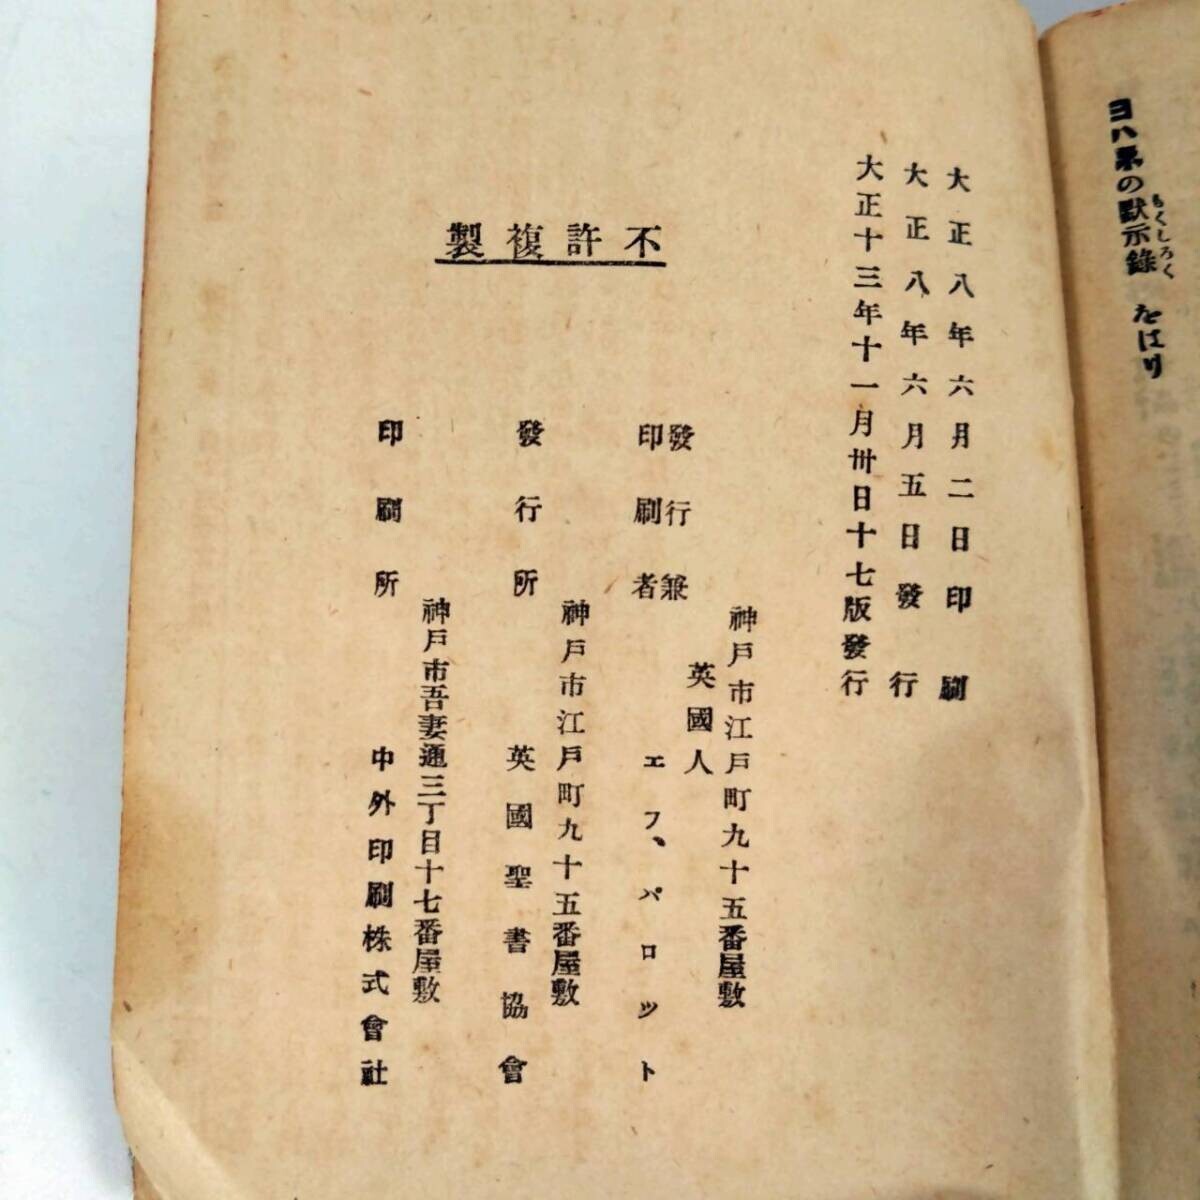 ヨハネの默示錄 をはり
もくしろく
大正八年六月二日印刷
大正八年六月五日發行
大正十三年十一月卅日十七版發行
不許複製
神戶市江戶町九十五番屋敷
英國人
發行兼
印刷者
エフ、パロット
神戶市江戶町九十五番屋敷
發行所
英國聖書協會
神戶市吾妻通三丁目十七番屋敷
印刷所
中外印刷株式會社